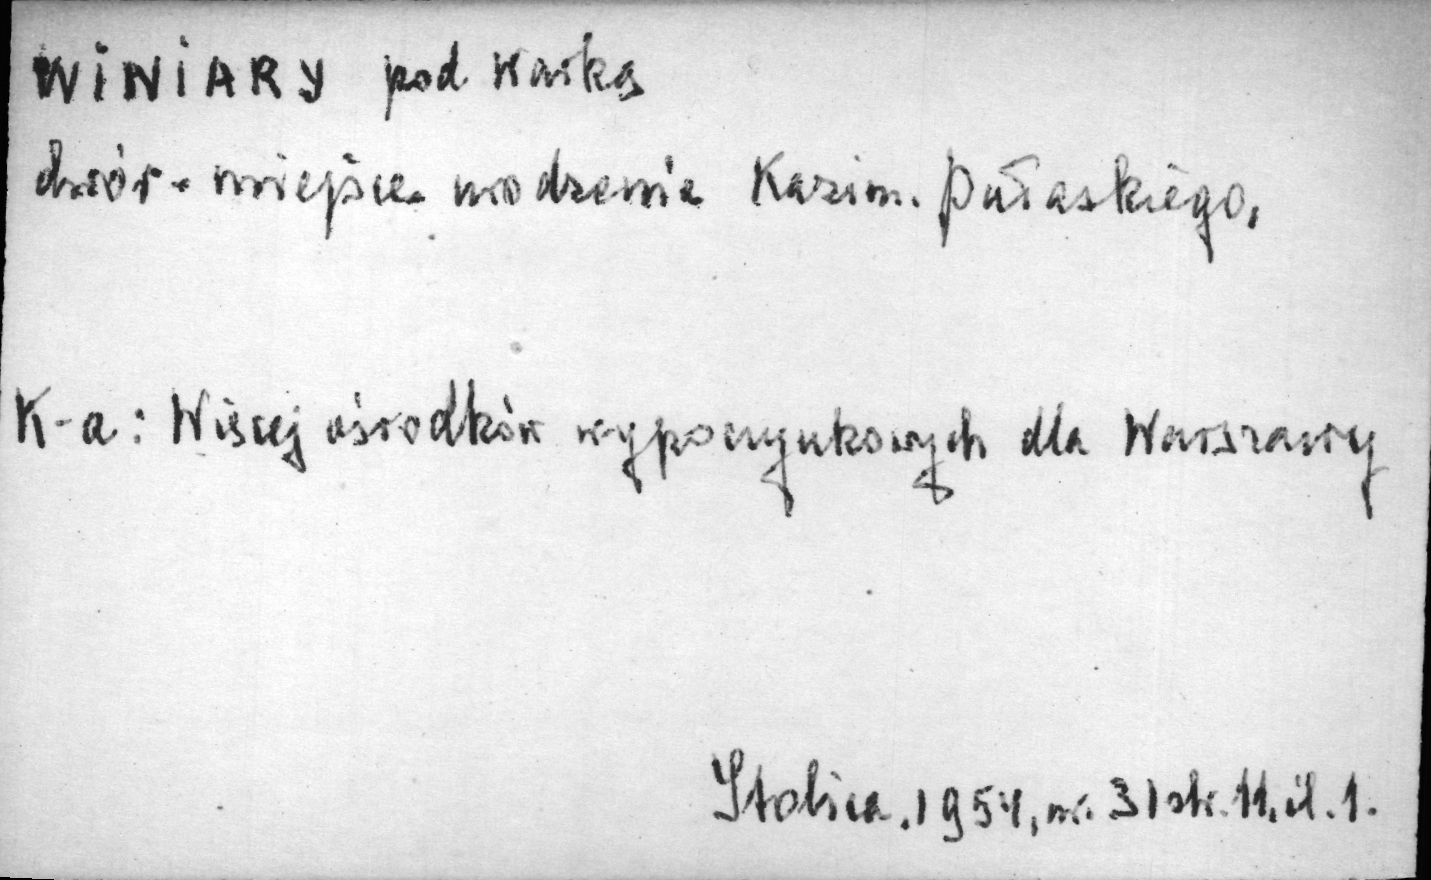 WINIARY pod Warką
dwór - miejsce urodzenia Kazim. Pułaskiego,
K-a: Więcej ośrodków wypoczynkowych dla Warszawy
Stolica. 1954, nr. 31 str. 11, il. 1.